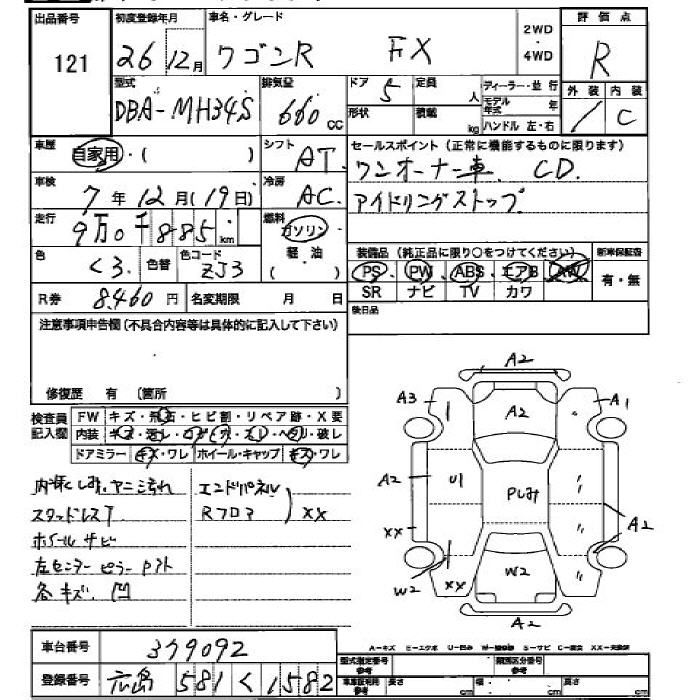 出品番号 初度登録年月 車名・グレード 2WD ・ 4WD 評価点
121 26 12月 ワゴンR FX R
型式 排気量 ドア 5 定員 人 ディーラー・並行 外装 内装
DBA-MH34S 660 cc 形状 積載 kg モデル年式 年 C
ハンドル 左・右
車歴 自家用・( ) シフト AT セールスポイント (正常に機能するものに限ります)
ワンオーナー車 CD.
車検 7年12月(19日) 冷房 AC アイドリングストップ
走行 9万0千885km 燃料 ガソリン・軽油 ( ) 装備品 (純正品に限り○をつけてください) 新車保証書
色 くろ 色替 色コード ZJ3 PS PW ABS エアB AW 有・無
R券 8460円 名変期限 月 日 SR ナビ TV カワ
注意事項申告欄 (不具合内容等は具体的に記入して下さい) 後日品
修復歴 有 (箇所 )
検査員記入欄 FW キズ・飛石・ヒビ割・リペア跡・X要
内装 キズ・汚レ・コゲ・穴・スレ・ヘタリ・破レ
ドアミラー キズ・ワレ ホイール・キャップ キズ・ワレ
A2
A3 A2 A1
A2 U1 A2
XX W2 XX W2
A2
エンドパネル
スタッドレスT Rフロア XX
ホイール サビ
各キズ. 凹
車台番号 379092
登録番号 広島 581 く 1582
A-キズ E-エクボ U-凹み S-サビ
型式指定番号 参考 類別区分番号 参考
長さ cm 幅 cm 高さ cm